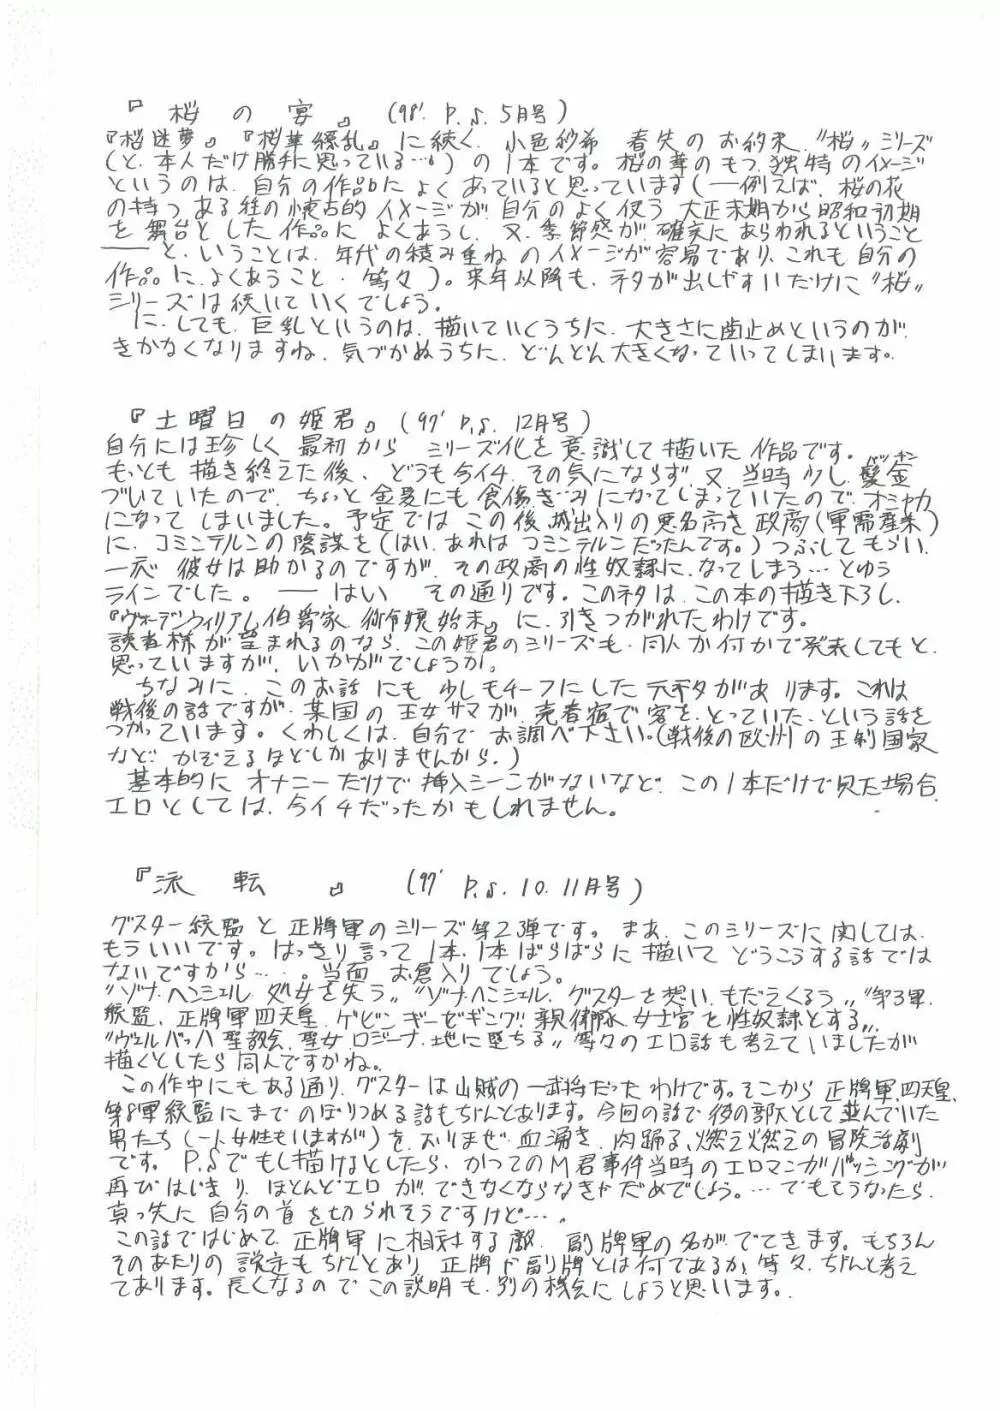 『桜の宴』 (98' P.S. 5月号)
『桜迷夢』『桜華繚乱』に続く、小邑紗希 春先のお約束、〝桜〟シリーズ
(と、本人だけ勝手に思っている…。)の1本です。桜の華のもつ独特のイメージ
というのは、自分の作品に よくあっていると思っています(――例えば、桜の花
の持つ ある種の懐古的イメージが 自分のよく使う 大正末期から昭和初期
を舞台とした作品に よくあうし、又、季節感が確実にあらわれるということ
――と、いうことは、年代の積み重ねのイメージが容易であり、これも自分の
作品に、よくあうこと・等々)。来年以降も、ネタが出しやすいだけに〝桜〟
シリーズは続いていくでしょう。
に、しても、巨乳というのは、描いていくうちに、大きさに歯止めというのが、
きかなくなりますね、気づかぬうちに、どんどん大きくなっていってしまいます。
『土曜日の姫君』(97' P.S. 12月号)
自分には珍しく、最初から シリーズ化を意識して描いた作品です。
もっとも描き終えた後、どうも今イチ、その気にならず、又、当時少し、髪金
パッキン
づいていたので、ちょっと金髪にも食傷ぎみになってしまっていたので、オシャカ
になって しまいました。予定では、この後、城出入りの悪名高き政商(軍需産業)
に、コミンテルンの陰謀を(はい、あれは コミンテルンだったんです。)つぶしてもらい、
一応 彼女は助かるのですが、その政商の性奴隷に、なってしまう…とゆう
ラインでした。――はい その通りです。このネタは、この本の描き下ろし、
『ヴォーデンウィリアム伯爵家 令嬢始末』に、引きつがれたわけです。
読者様が望まれるのなら、この姫君のシリーズも、同人か何かで発表してもと、
思っていますが、いかがでしょうか。
ちなみに、このお話にも 少しモチーフにした元ネタがあります。これは
戦後の話ですが、某国の王女サマが、売春宿で客を、とっていた、という話を
つかっています。くわしくは、自分で お調べ下さい。(戦後の欧州の王制国家
など、かぞえるほどしかありませんから。)
基本的に オナニーだけで 挿入シーンがないなど、この1本だけで見た場合、
エロとしては、今イチだったかもしれません。
『流転』 (97' P.S. 10.11月号)
グスター統監と正牌軍のシリーズ第2弾です。まあ、このシリーズに関しては、
もういいです。はっきり言って1本、1本ばらばらに描いて どうこうする話では
ないですから…。当面 お倉入りでしょう。
〝ゾナ・ヘンシェル 処女を失う〟〝ゾナ・ヘンシェル、グスターを想い、もだえくるう〟〝第3軍
統監、正牌軍四天王、ゲビン・ギーゼギング!!親衛隊女士官を性奴隷とする〟
〝ヴェルバッハ聖教会、聖女ロジーナ・地に堕ちる〟等々のエロ話も考えていましたが
描くとしたら同人ですかね。
この作中にもある通り、グスターは山賊の一武将だったわけです。そこから 正牌軍四天皇、
第8軍統監にまでのぼりつめる話もちゃんとあります。今回の話で後の部下として並んでいた
男たち(一人女性もいますが)を、おりまぜ 血湧き、肉踊る、燃え燃えの冒険活劇
です。P.Sでもし描けるとしたら、かつてのM君事件当時のエロマンガバッシングが
再びはじまり、ほとんどエロが、できなくならなきゃだめでしょう。…でもそうなったら、
真っ先に自分の首を切られそうですけど…。
この話ではじめて、正牌軍に相対する敵、副牌軍の名がでてきます。もちろん
そのあたりの設定もちゃんとあり、正牌と副牌とは何であるか、等々、ちゃんと考え
てあります。長くなるのでこの説明も、別の機会にしようと思います。